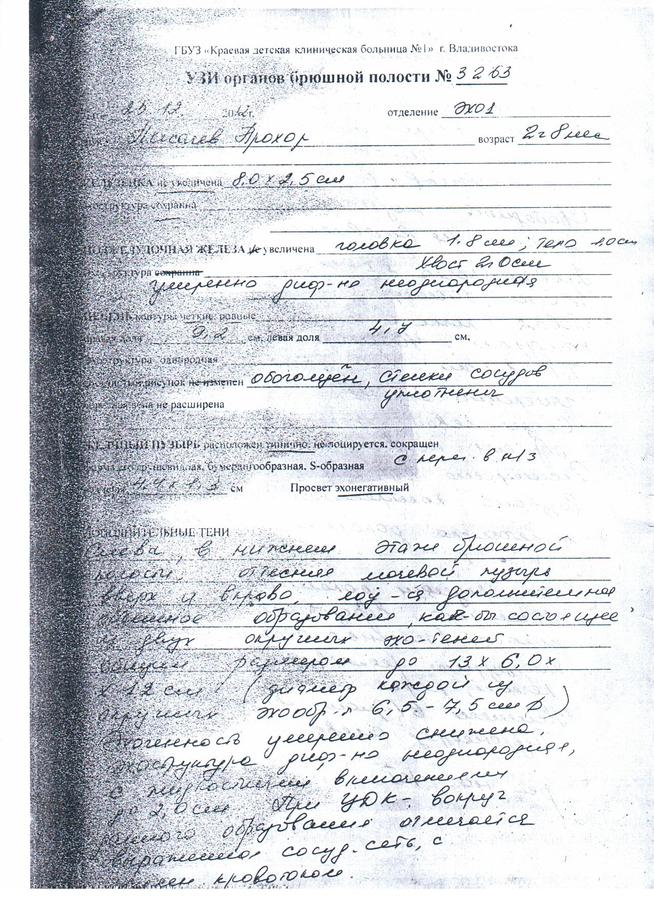 ГБУЗ «Краевая детская клиническая больница №1» г. Владивостока
УЗИ органов брюшной полости № 3263
25.12 2012г. отделение ЭХО1
Прохор возраст 2г8мес
не увеличена 8,0 х 2,5 см
сохранна
ПОДЖЕЛУДОЧНАЯ ЖЕЛЕЗА увеличена головка 1.8 см; тело
сохранна хвост 2.0см
умеренно диф-но неоднородная
контуры четкие, ровные
доля 9,2 см, левая доля см,
однородная
рисунок не изменен обогащён, стенки сосудов
уплотнены
не расширена
ПУЗЫРЬ расположен типично, не лоцируется, сокращен
бумерангообразная, S-образная с пер. в н/з
см Просвет эхонегативный
ДОПОЛНИТЕЛЬНЫЕ ТЕНИ
Слева, в нижнем этаже брюшной
полости, оттесняя мочевой пузырь
вверх и вправо, лоц-ся дополнительное
объемное образование, как бы состоящее
из двух округлых эхо-теней
общим размером до 13 х 6,0 х
х 12 см (диаметр каждой из
округлых эхообр-я 6,5 - 7,5 см)
Эхогенность умеренно снижена,
эхоструктура диф-но неоднородная,
с жидкостными включениями
до 2,0 см. При ЦДК - вокруг
образования отмечается
выраженная сосуд. сеть, с
кровотоком.